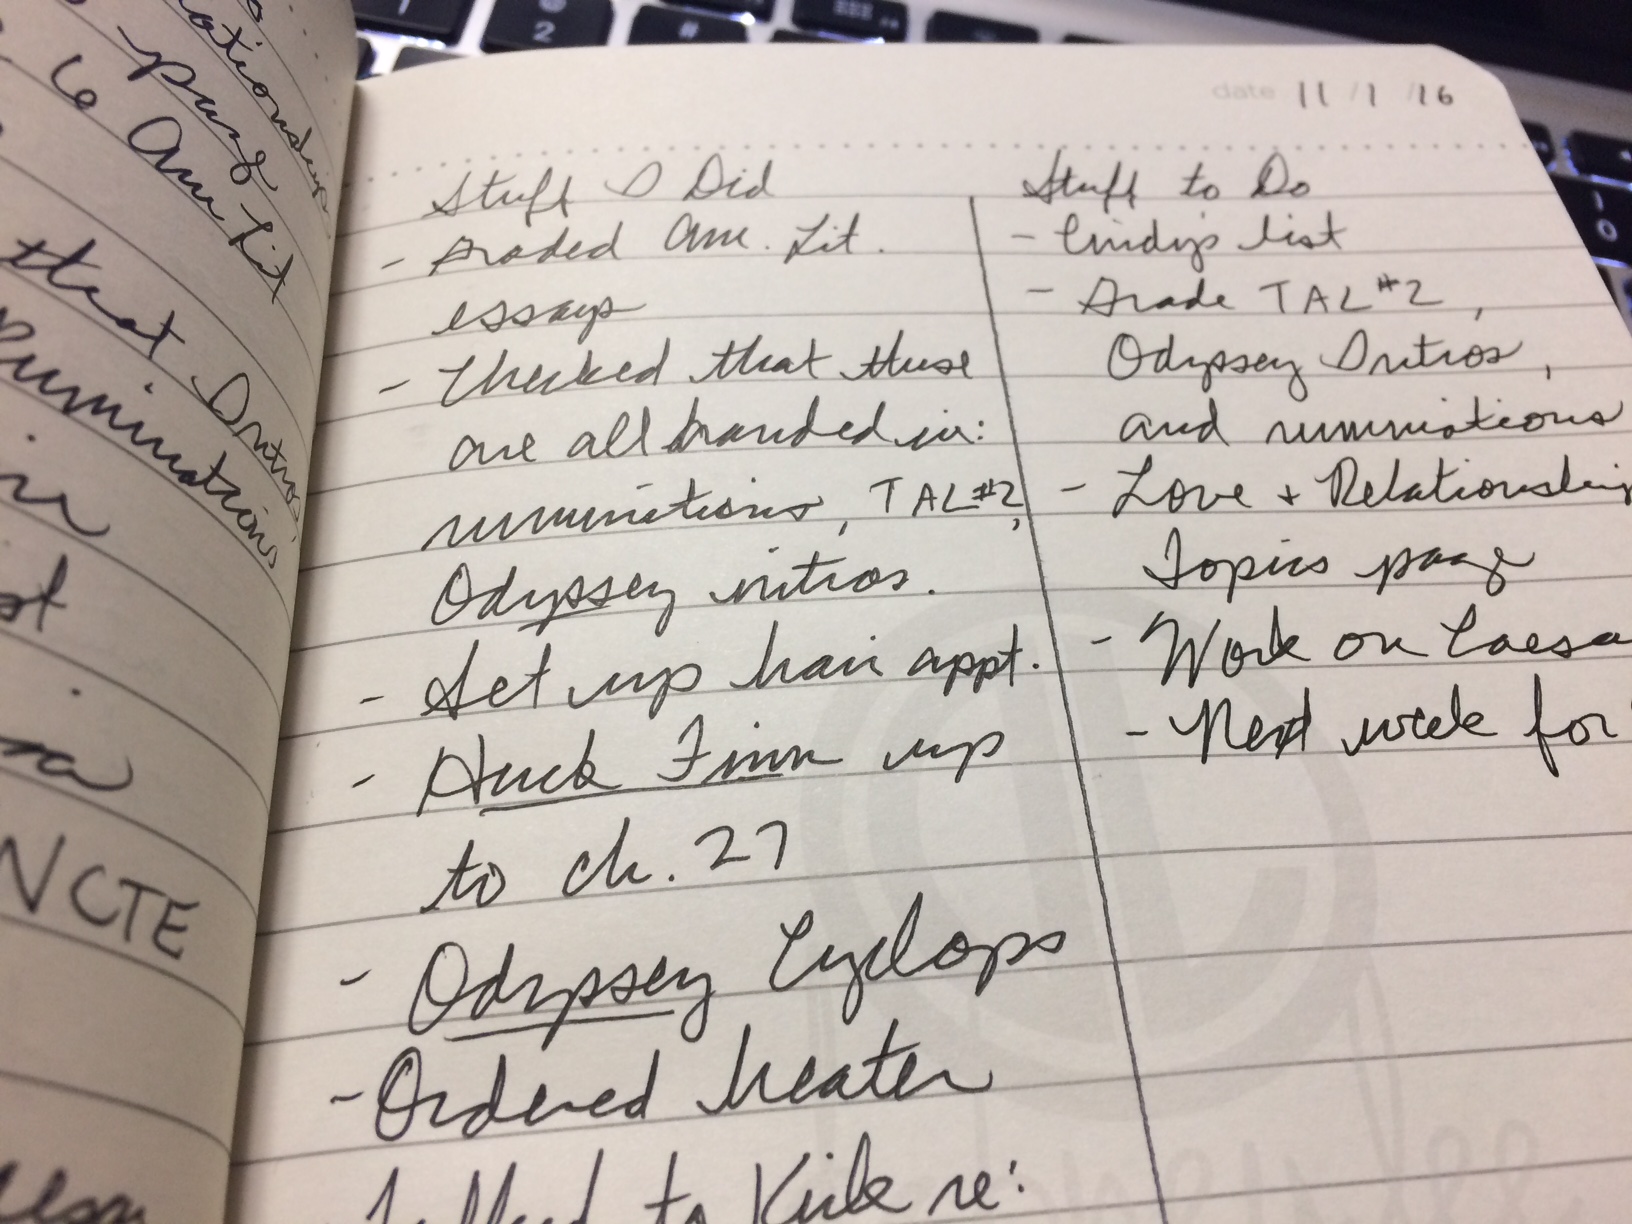 ationship
pang
6 Am Lit
that Intros
ruminations
NCTE
date 11/1/16
Stuff I Did
- Graded Am. Lit.
essays
- Checked that these
are all handed in:
ruminations, TAL #2,
Odyssey intros.
- Set up hair appt.
- Huck Finn up
to ch. 27
- Odyssey Cyclops
- Ordered heater
Talked to Kirk re:
Stuff to Do
- Cindy's list
- Grade TAL #2,
Odyssey Intros,
and ruminations
- Love + Relationship
Topics page
- Work on Caesa
- Next week for